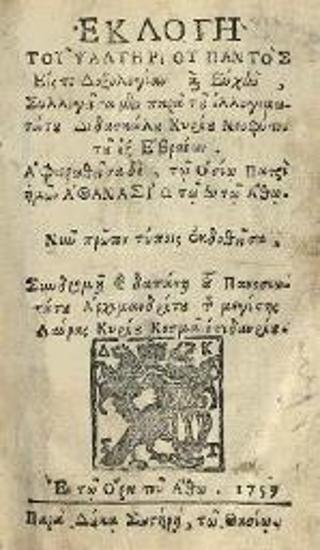 ΕΚΛΟΓΗ
ΤΟΥ ΨΑΛΤΗΡΙΟΥ ΠΑΝΤΟΣ
Εἰς τε Δοξολογίαν ἢ Εὐχὴν,
Συλλεγεῖσα μὲν παρὰ τοῦ ἐλλογιμω-
τάτου Διδασκάλου Κυρίου Νεοφύτου
τοῦ ἐξ Ἑβραίων.
Ἀφιερωθεῖσα δὲ, τῷ Ὁσίῳ Πατρὶ
ἡμῶν ἈΘΑΝΑΣΙΩ τῷ ἐν τῷ Ἄθῳ.
Νῦν πρῶτον τύποις ἐκδοθεῖσα,
Συνδρομῇ καὶ δαπάνῃ τοῦ Πανοσιω
τάτου Ἀρχιμανδρίτου τῆς μεγίστης
Λαύρας Κυρίου Κοσμᾶ
Δ Κ
Σ Τ
Ἐν τῷ Ὄρει τοῦ Ἄθω. 1759
Παρὰ Δούκα Σωτήρη, τῷ Θασίῳ.